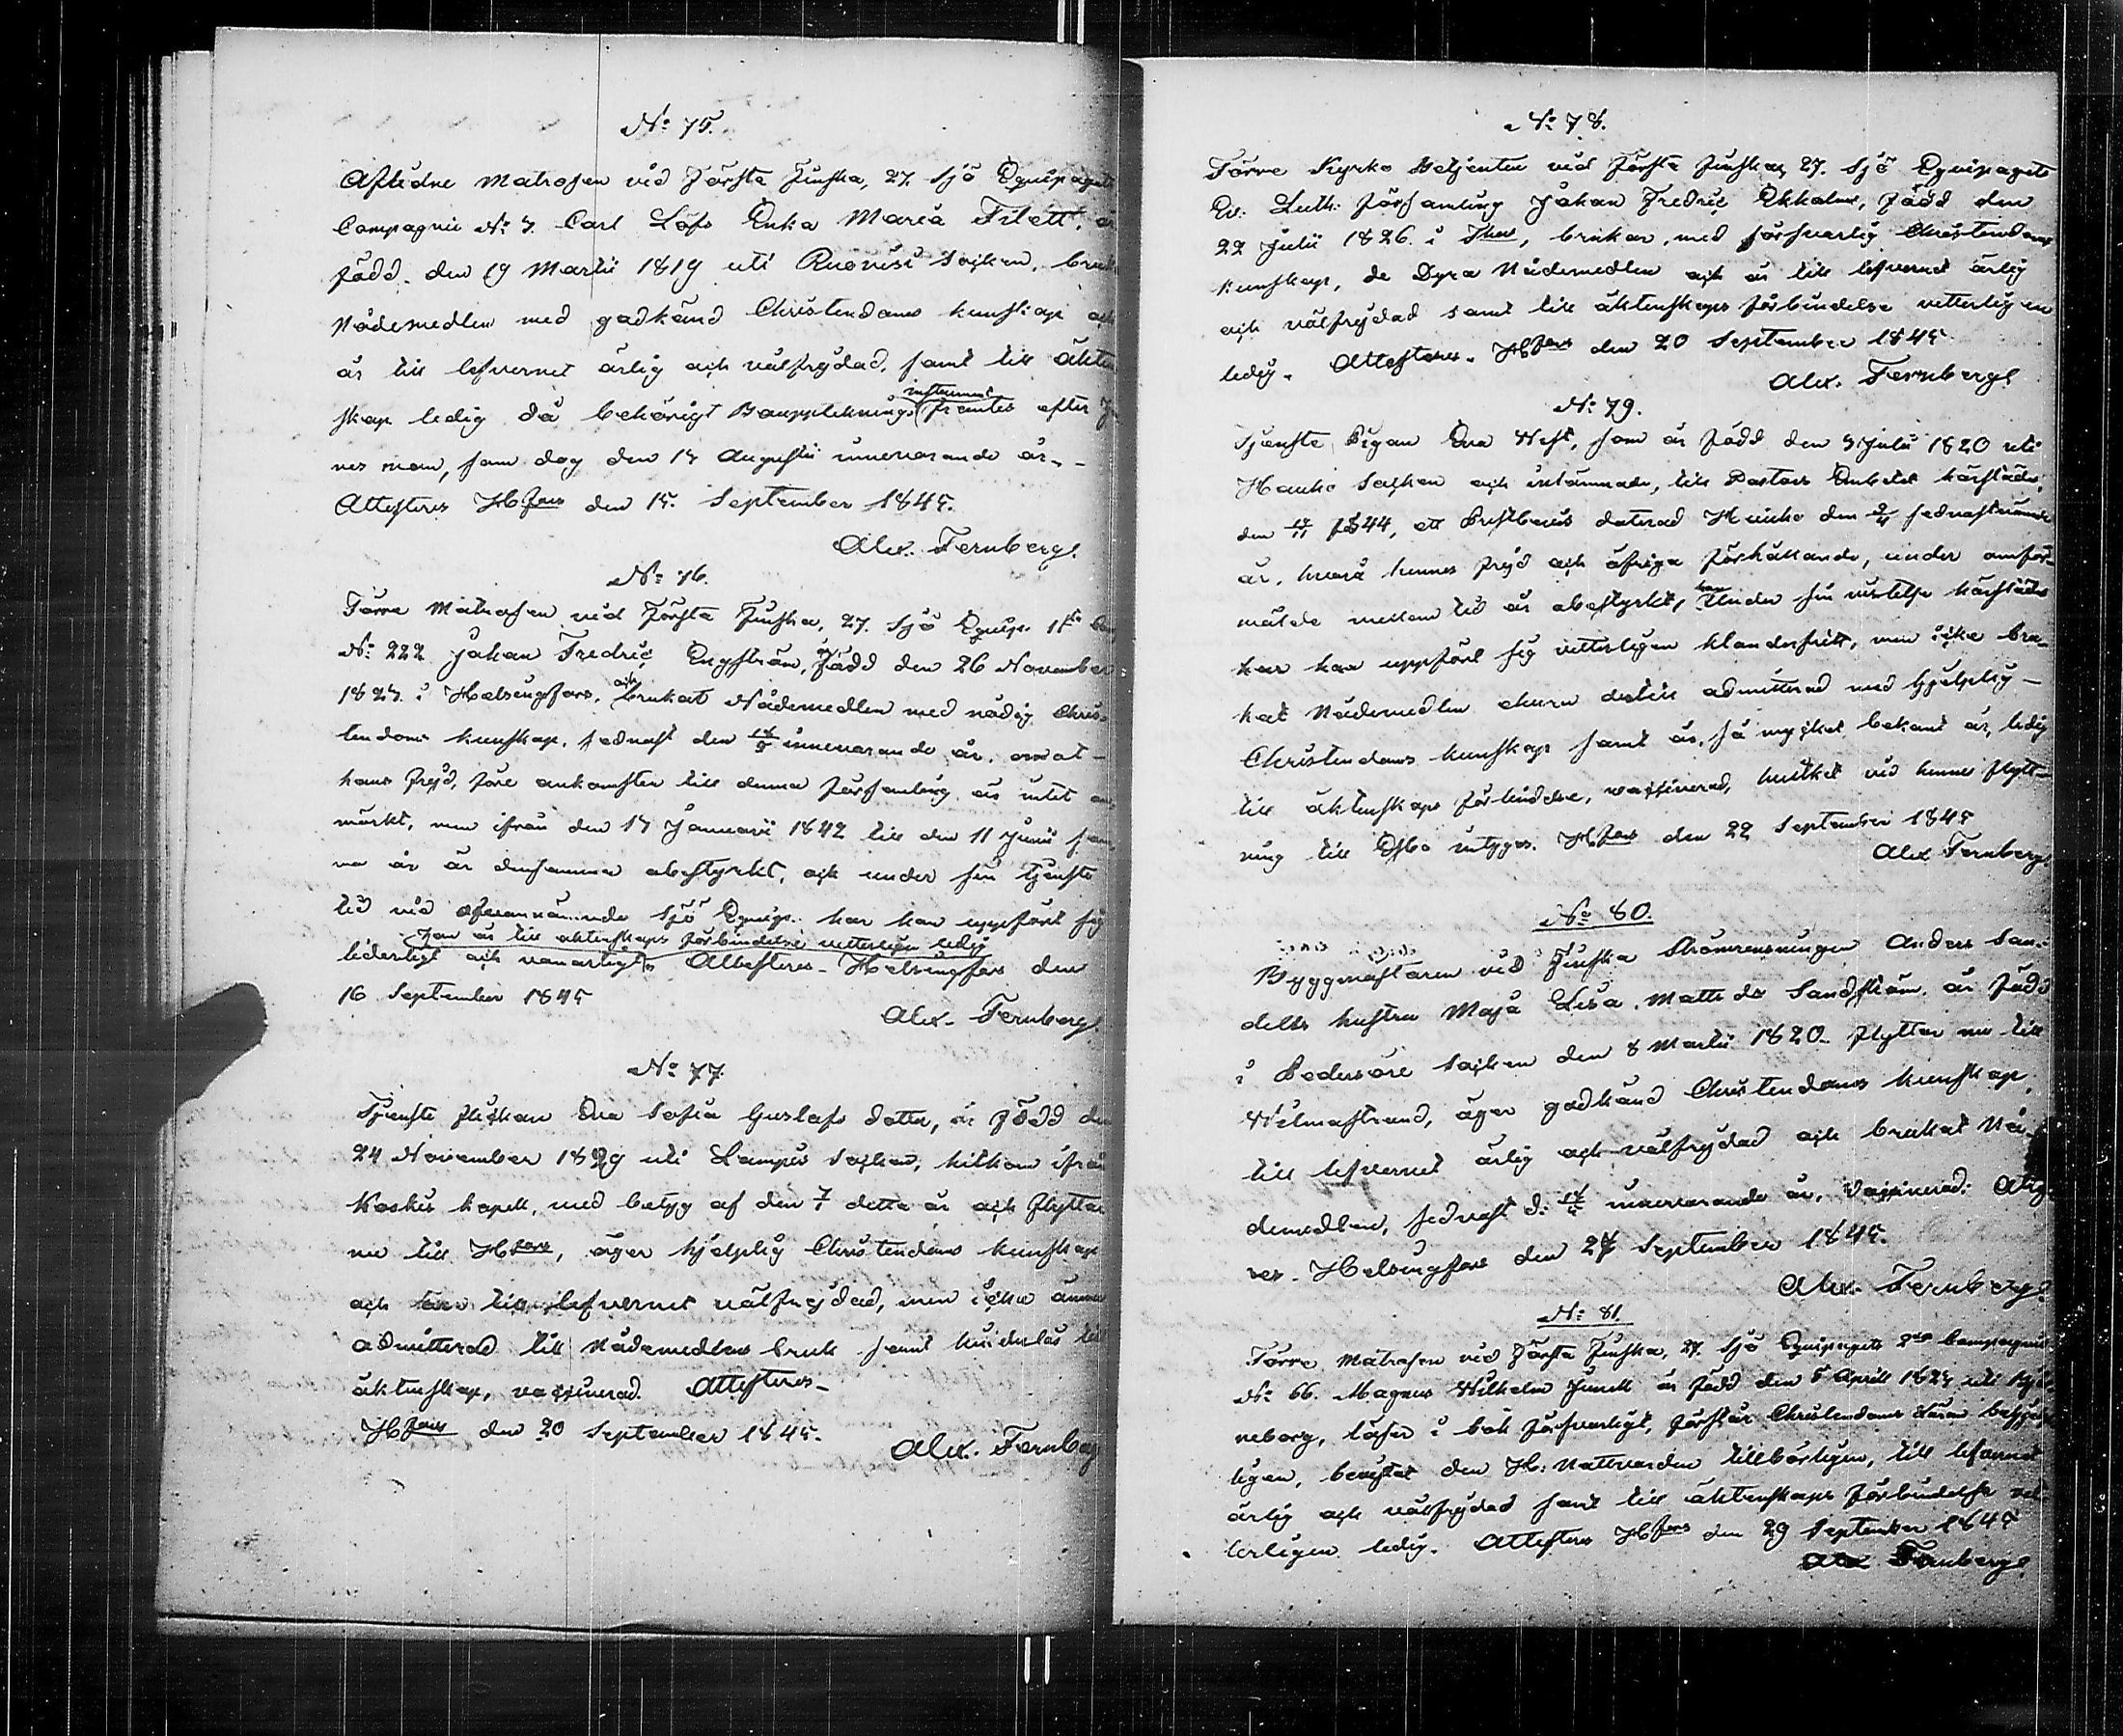 No 75.
Aflidne Matrosen vid Första Finska, 27. Sjö Equipagets
Compagnie No 7. Carl Löfs Enka Maria Filett, är
född den 19 Martii 1819 uti Ruovesi Socken, brukat
Nådemedlen med godkänd Christendoms kunskap och
är till lefvernet ärlig och välfrejdad, samt till äkten
skap ledig då behörigt Bouppteknings instrument företes efter
nes man, som dog den 17 Augustii innevarande år. -
Attesteras Hfors den 15. September 1845.
Alex. Fernberg.
No 76.
Förre Matrosen vid Första Finska, 27. Sjö Equip. 1sta Com
No 222 Johan Fredric Engström, är född den 26 November
1827. i Helsingfors, och brukat Nådemedlen med nödig Chris-
tendoms kunskap, sednast den innevarande år, emot
hans frejd, före ankomsten till denna församling, är intet an
märkt, men ifrån den 17 Januarii 1842 till den 11 Junii sam
ma år är densamma obestyrkt, och under sin tjenste
tid vid ofvannämnde Sjö Equip. har han uppfört sig
han är till äktenskaps förbindelse vetterligen ledig
liderligt och vanartigt. Attesteras - Helsingfors den
16 September 1845
Alex. Fernberg.
No 77
Tjenste flickan Eva Sofia Gustafs dotter, är född den
24 November 1829 uti Lampis Socken, hitkom ifrån
Koskis kapell, med betyg af den 7 detta år och flyttar
nu till Hfors, äger hjelplig Christendoms kunskap
och till lefvernet välfrejdad, men icke ännu
admitterad till Nådemedlens bruk samt hinderlös till
äktenskap, vaccinerad. Attesteras -
Hfors den 20 September 1845.
Alex. Fernberg
No 78.
Förre Kyrko Betjenten vid Första Finska 27. Sjö Equipagets
Ev. Luth. församling Johan Fredric Ekholm, född den
22 Julii 1826. i brukar, med försvarlig Christendoms
kunskap, de Dyra Nådemedlen och är till lefvernet ärlig
och välfrejdad samt till äktenskaps förbindelse vetterligen
ledig. Attesteras. Hfors den 20 September 1845
Alex. Fernberg
No 79.
Tjenste Pigan Eva West, som är född den Julii 1820 uti
Hauho Socken och inlämnade, till Pastors Embetet härstädes,
den 1844, ett Prestbevis dateradt Hauho den sednastnämnde
år, hvari hennes frejd och öfriga förhållande, under omför-
mälde mellan tid är obestyrkt, Under sin vistelse härstädes
har hon uppfört sig vetterligen klanderfritt, men icke bru-
kat Nådemedlen ehuru dertill admitterad med hjelplig
Christendoms kunskap samt är, så mycket bekant är, ledig
till äktenskaps förbindelse, vaccinerad, hvilket vid hennes flytt-
ning till Esbo intygas. Hfors den 22 September 1845
Alex Fernberg
No 80.
Byggmästaren vid Finska Strömrensningen Anders San-
dells hustru Maja Lisa Matts dr Sandström, är född
i Pedersöre Socken den 8 Martii 1820. flyttar nu till
Wilmastrand, äger godkänd Christendoms kunskap,
till lefvernet ärlig och välfrejdad och brukat Nå-
demedlen, sednast d. innevarande år, Vaccinerad. Atte
ras. Helsingfors den 24 September 1845.
Alex. Fernberg
No 81.
Förre Matrosen vid Första Finska, 27. Sjö Equipagets 2dra Compagnie
No 66. Magnus Wilhelm Junell är född den 5 Aprill 1827 uti Björ
neborg, läser i bok försvarligt, förstår Christendoms Läran
ligen, bevistat den H. Nattvarden tillbörligen, till lefvernet
ärlig och välfrejdad samt till äktenskaps förbindelse vet
terligen ledig. Attesteras Hfors den 29 September 1845
Alex Fernberg